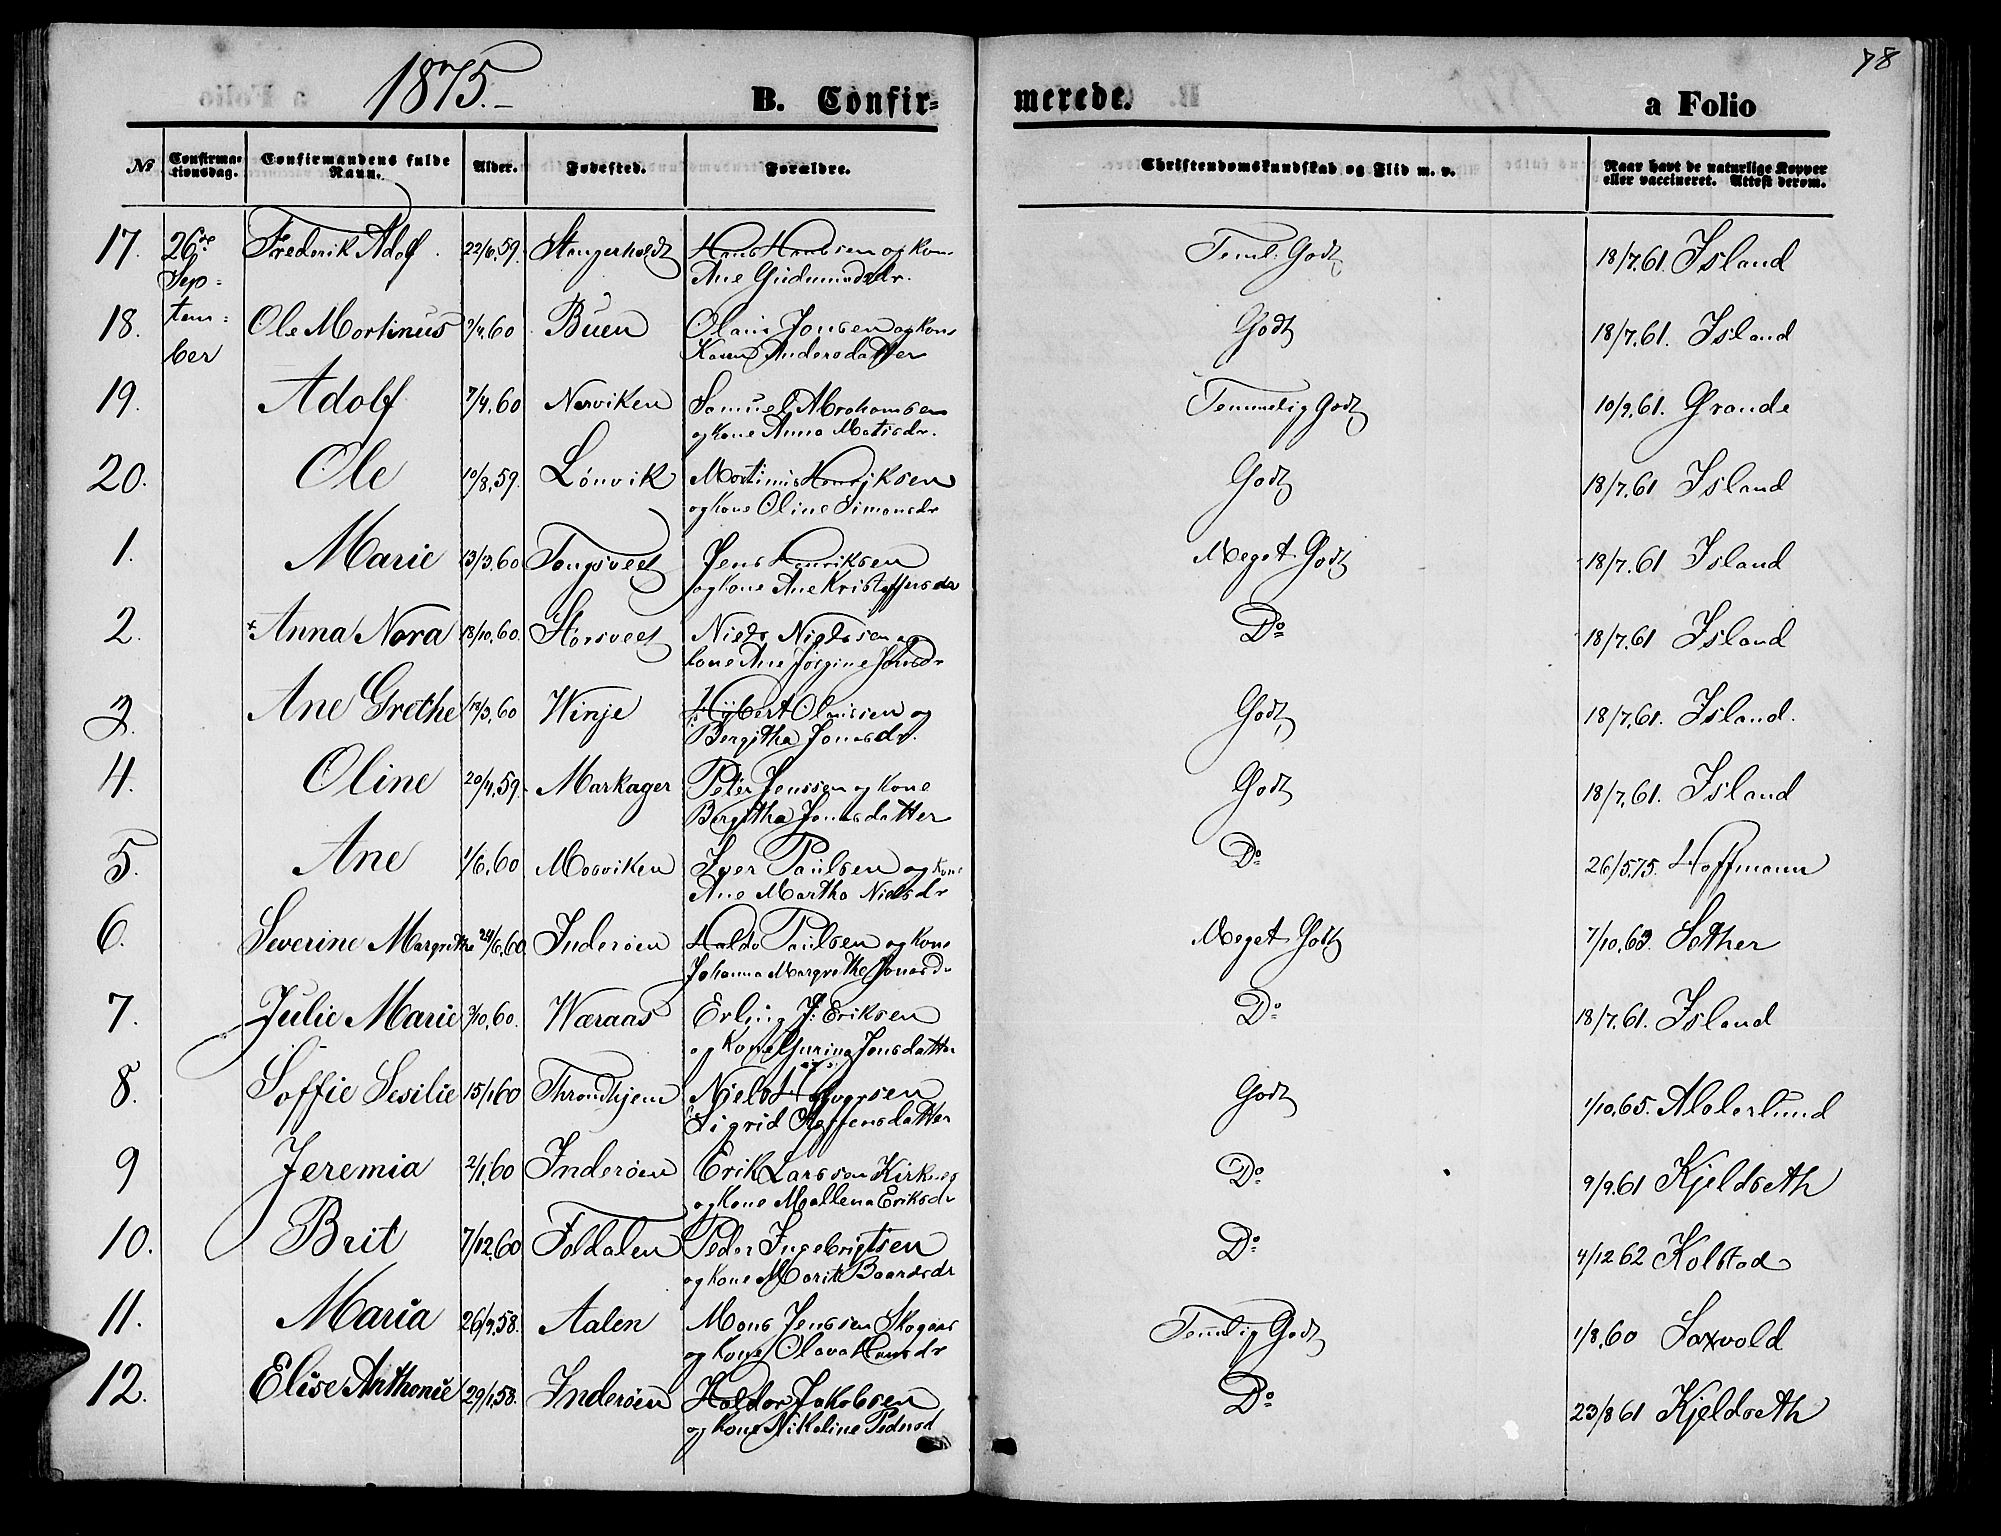 1875.-
78
B. Confir-
merede.
a Folio
No
Confirma-
tionsdag.
Confirmandens fulde
Navn.
Alder.
Fødested.
Forældre.
Christendomskundskab og Flid m. v.
Naar havt de naturlige Kopper
eller vaccineret. Attest derom.
17. 26de Frederik Adolf. 22/6.59. Stangerholdt Hans Hansen og Kone Teml. Godt 18/7.61. Island
Sep- Ane Gudmundsdr.
18. tem- Ole Martinus 2/4.60 Buen Olaus Jonsen og Kone Godt 18/7.61. Island
ber Karen Andersdatter
19. Adolf 7/4.60 Nerviken Samuel Abrahamsen Temmelig Godt 10/9.61. Grande
og Kone Anna Matisdr.
20. Ole 10/8.59. Lönvik Martinus Henriksen Godt 18/7.61 Island
og Kone Oline Simonsdr
1. Marie 13/3.60 Tongsveet Jens Henriksen Meget Godt 18/7.61 Island
og Kone Ane Kristoffersdr
2. Anna Nora 18/10.60. Storsveet Niels Nielssen og Do 18/7.61 Island
Kone Ane Jörgine Jonsdr
3. Ane Grethe 18/3.60 Winje Hÿbert Olaussen og Godt 18/7.61. Island.
Bergitha Jonasdr.
4. Oline 20/4.59. Markager Peter Jenssen og Kone Godt 18/7.61. Island
Bergitha Jonasdatter
5. Ane 1/6.60 Mosviken Iver Paulsen og Kone Do 26/5.75. Hoffmann
Ane Martha Nielsdr
6. Severine Margrethe 24/6.60. Inderöen Haldo Paulsen og Kone Meget Godt 7/10.63. Sether
Johanna Margrethe Jonasdr
7. Julie Marie 3/10.60. Wæraas Erling J. Eriksen Do 18/7.61. Island
og Kone Guring Jonsdatter
8. Soffie Sesilie 15/1.60 Throndhjem Niels Halvorsen Godt 1/10.65. Alderlund
Sigrid Steffensdatter
9 Jeremia 2/1.60 Inderöen Erik Larssen Kirknes Do 9/9.61 Kjeldseth
og Kone Mallena Eriksdr
10. Brit 7/12.60 Foldalen Peder Ingebrigtsen Do 4/12 62 Kolstad
og Kone Marit Baardsdr
11. Maria 26/9.58. Aalen Mons Jenssen Skogaas Temmelig Godt 1/8.60 Saxvold
og Kone Olava Hansdr
12. Elise Anthonie 29/1.58. Inderöen Haldor Jakobsen Do 23/8 61 Kjeldseth
og Kone Nikoline Pedersd